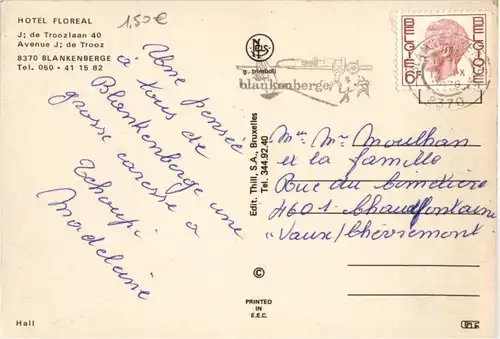 HOTEL FLOREAL
J; de Troozlaan 40
Avenue J; de Trooz
8370 BLANKENBERGE
Tel. 050 - 41 15 82
1,50 €
Une pensée
à tous de
Blankenberge une
grosse caresse à
Tchoupi
Madeleine
Hall
NELS
blankenberge
Edit. Thill, S.A., Bruxelles
Tel. 344.92.40
©
PRINTED
IN
E.E.C.
BELGIE
BELGIQUE
8370
Mme Mr Moulhan
et la famille
Rue du Cimetière
4601 Chaudfontaine
"Vaux/Chèvremont